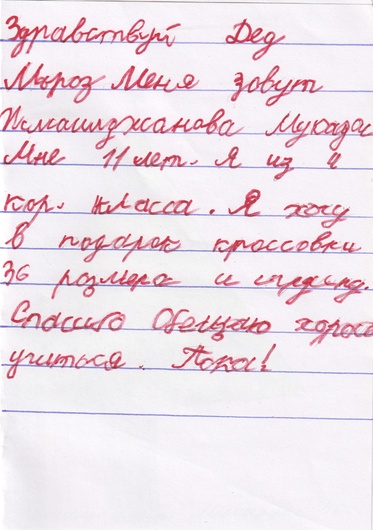 Здравствуй Дед
Мороз Меня зовут
Исмаилджанова Мукадас
Мне 11 лет. Я из 4
кор. класса. Я хочу
в подарок кроссовки
36 размера и
Спасибо Обещаю хорошо
учиться. Пока!